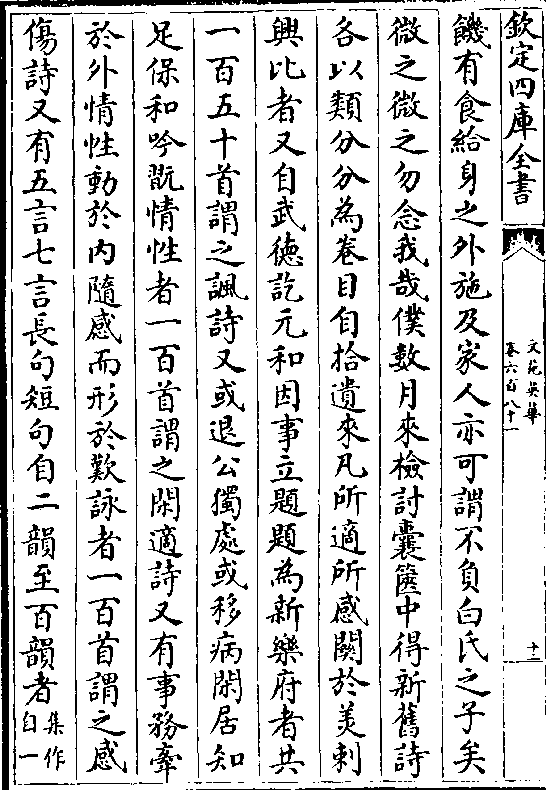 欽定四庫全書
文苑英華
卷六百八十一
十二
饑有食給身之外施及家人亦可謂不負白氏之子矣
微之微之勿念我哉僕數月來檢討囊篋中得新舊詩
各以類分分為卷目自拾遺來凡所適所感關於美刺
興比者又自武德訖元和因事立題題為新樂府者共
一百五十首謂之諷詩又或退公獨處或移病閑居知
足保和吟翫情性者一百首謂之閑適詩又有事務牽
於外情性動於內隨感而形於歎詠者一百首謂之感
傷詩又有五言七言長句短句自二韻至百韻者集作自一